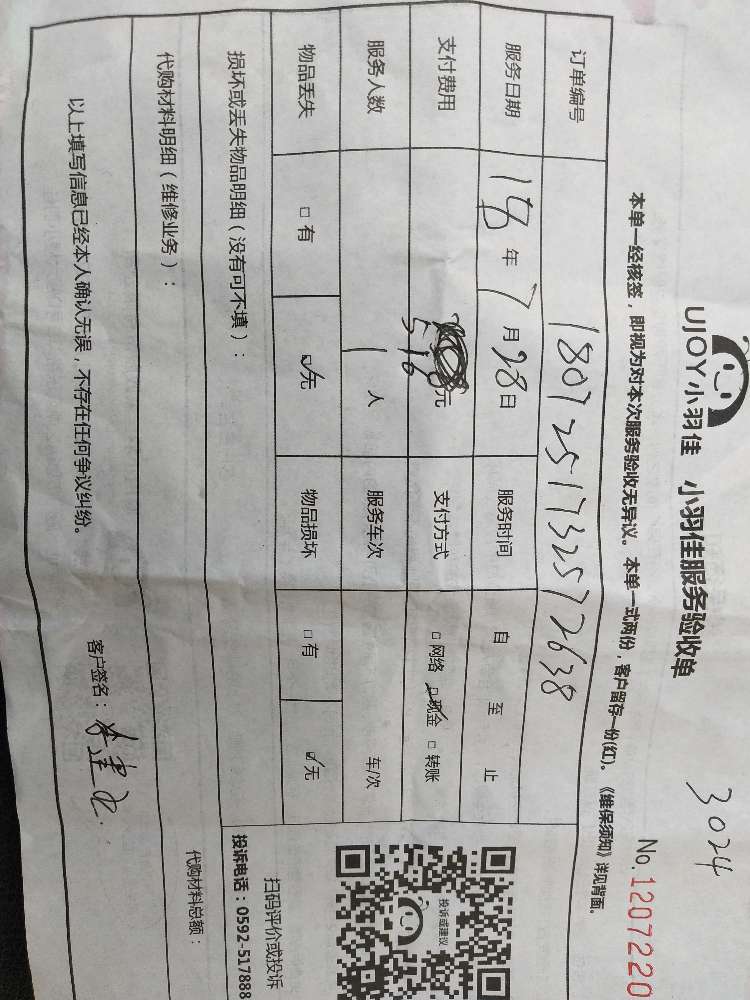 3024
UJOY小羽佳 小羽佳服务验收单
No.1207220
本单一经核签，即视为对本次服务验收无异议。本单一式两份，客户留存一份(红)。《维保须知》详见背面。
订单编号 1807251732572638
服务日期 18年7月28日 服务时间 自 至 止
支付费用 516元 支付方式 □网络 ☑现金 □转账
服务人数 1人 服务车次 车/次
物品丢失 □有 ☑无 物品损坏 □有 ☑无
投诉或建议
扫码评价或投诉
投诉电话：0592-517888
损坏或丢失物品明细（没有可不填）：
代购材料明细（维修业务）： 代购材料总额：
以上填写信息已经本人确认无误，不存在任何争议纠纷。
客户签名：